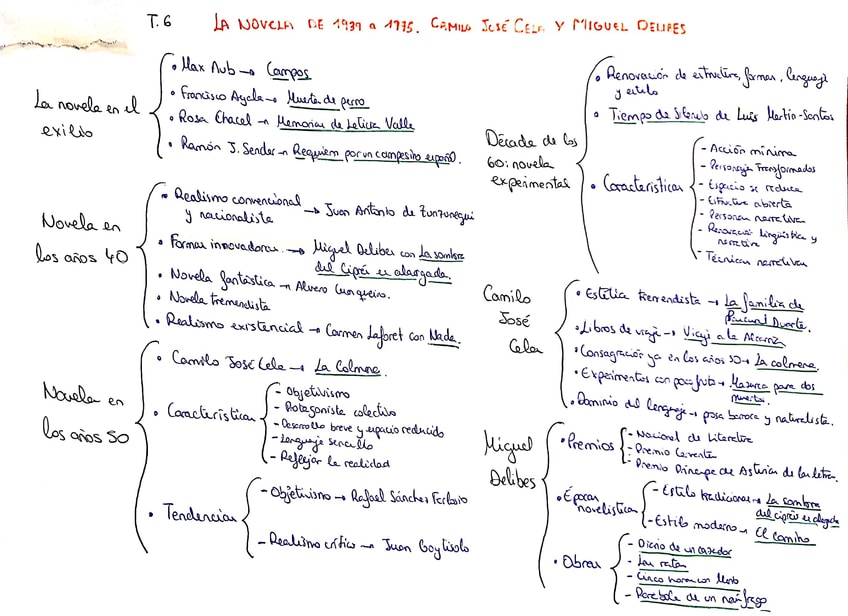 T.6 LA NOVELA DE 1939 a 1975. CAMILO JOSÉ CELA Y MIGUEL DELIBES
La novela en el
exilio
• Max Aub → Campos
• Francisco Ayala → Muertes de perro
• Rosa Chacel → Memorias de Leticia Valle
• Ramón J. Sender → Requiem por un campesino español.
Novela en
los años 40
• Realismo convencional
y nacionalista → Juan Antonio de Zunzunegui
• Formas innovadoras. → Miguel Delibes con La sombra
del Ciprés es alargada.
• Novela fantástica → Alvaro Cunqueiro.
• Novela tremendista
• Realismo existencial → Carmen Laforet con Nada.
Novela en
los años 50
• Camilo José Cela → La Colmena.
• Características
- Objetivismo
- Protagonista colectivo
- Desarrollo breve y espacio reducido
- Lenguaje sencillo
- Reflejar la realidad
• Tendencias
- Objetivismo → Rafael Sánches Ferlosio
- Realismo crítico → Juan Goytisolo
Década de los
60: novela
experimental
• Renovación de estructura, formas, lenguaje
y estilo
• Tiempo de Silencio de Luis Martín-Santos
• Características
- Acción mínima
- Personajes Transformados
- Espacio se reduce
- Estructura abierta
- Personas narrativas
- Renovación lingüística y
narrativa
- Técnicas narrativas
Camilo
José
Cela
• Estética tremendista → La familia de
Pascual Duarte.
• Libros de viaje → Viaje a la Alcarria
• Consagración ya en los años 50 → La colmena.
• Experimentos con poco fruto → Mazurca para dos
muertos.
• Dominio del lenguaje → prosa barroca y naturalista.
Miguel
Delibes
• Premios
- Nacional de Literatura
- Premio Cervantes
- Premio Príncipe de Asturias de las letras.
• Épocas
novelísticas
- Estilo tradicional → La sombra
del ciprés es alargada
- Estilo moderno → El camino
• Obras
- Diario de un cazador
- Las ratas
- Cinco horas con Mario
- Parábola de un náufrago